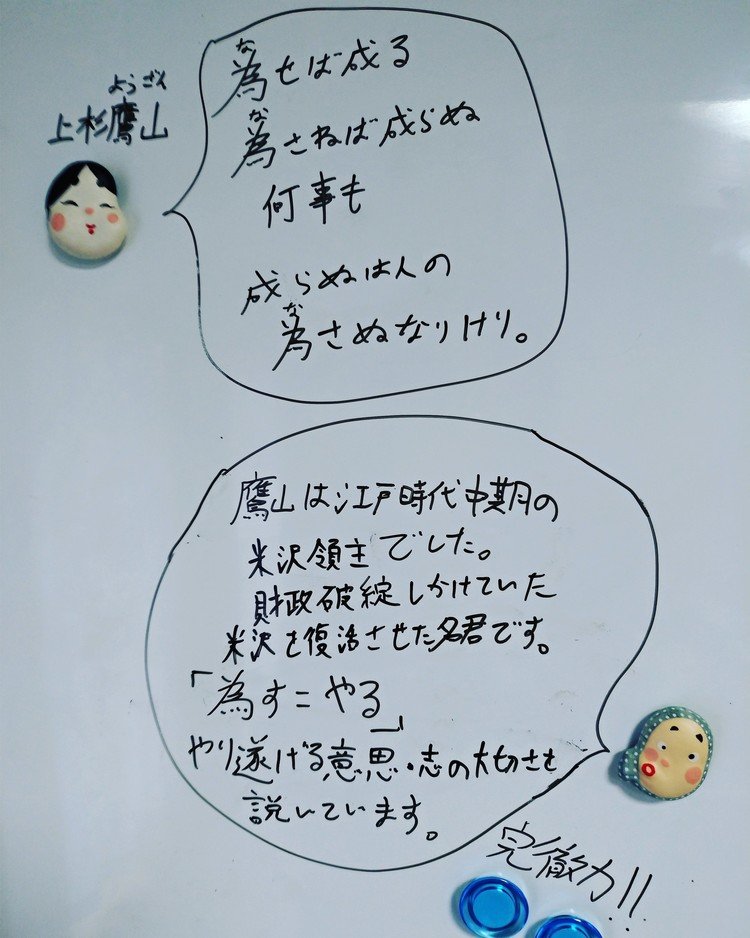 上杉鷹山
ようざん
為せば成る
な
為さねば成らぬ
な
何事も
成らぬは人の
為さぬなりけり。
な
鷹山は江戸時代中期の
米沢領主でした。
財政破綻しかけていた
米沢を復活させた名君です。
「為す=やる」
やり遂げる意思・志の大切さを
説いています。
完徹力!!